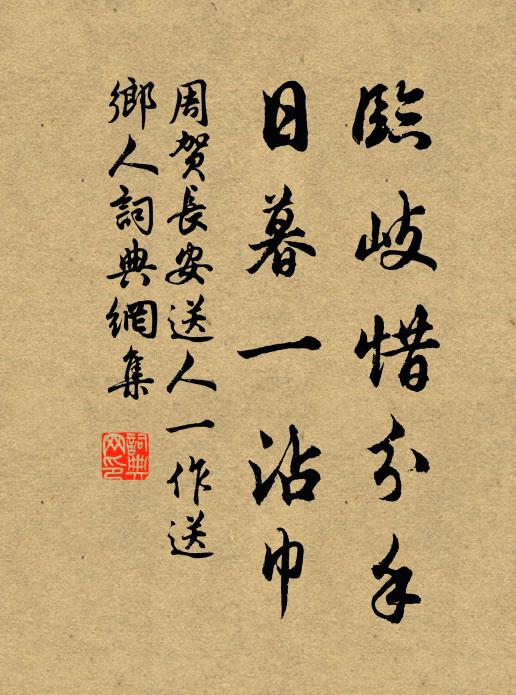 臨岐惜分手
日暮一沾巾
周賀長安送人一作送
鄉人詞典網集
詞典
网印